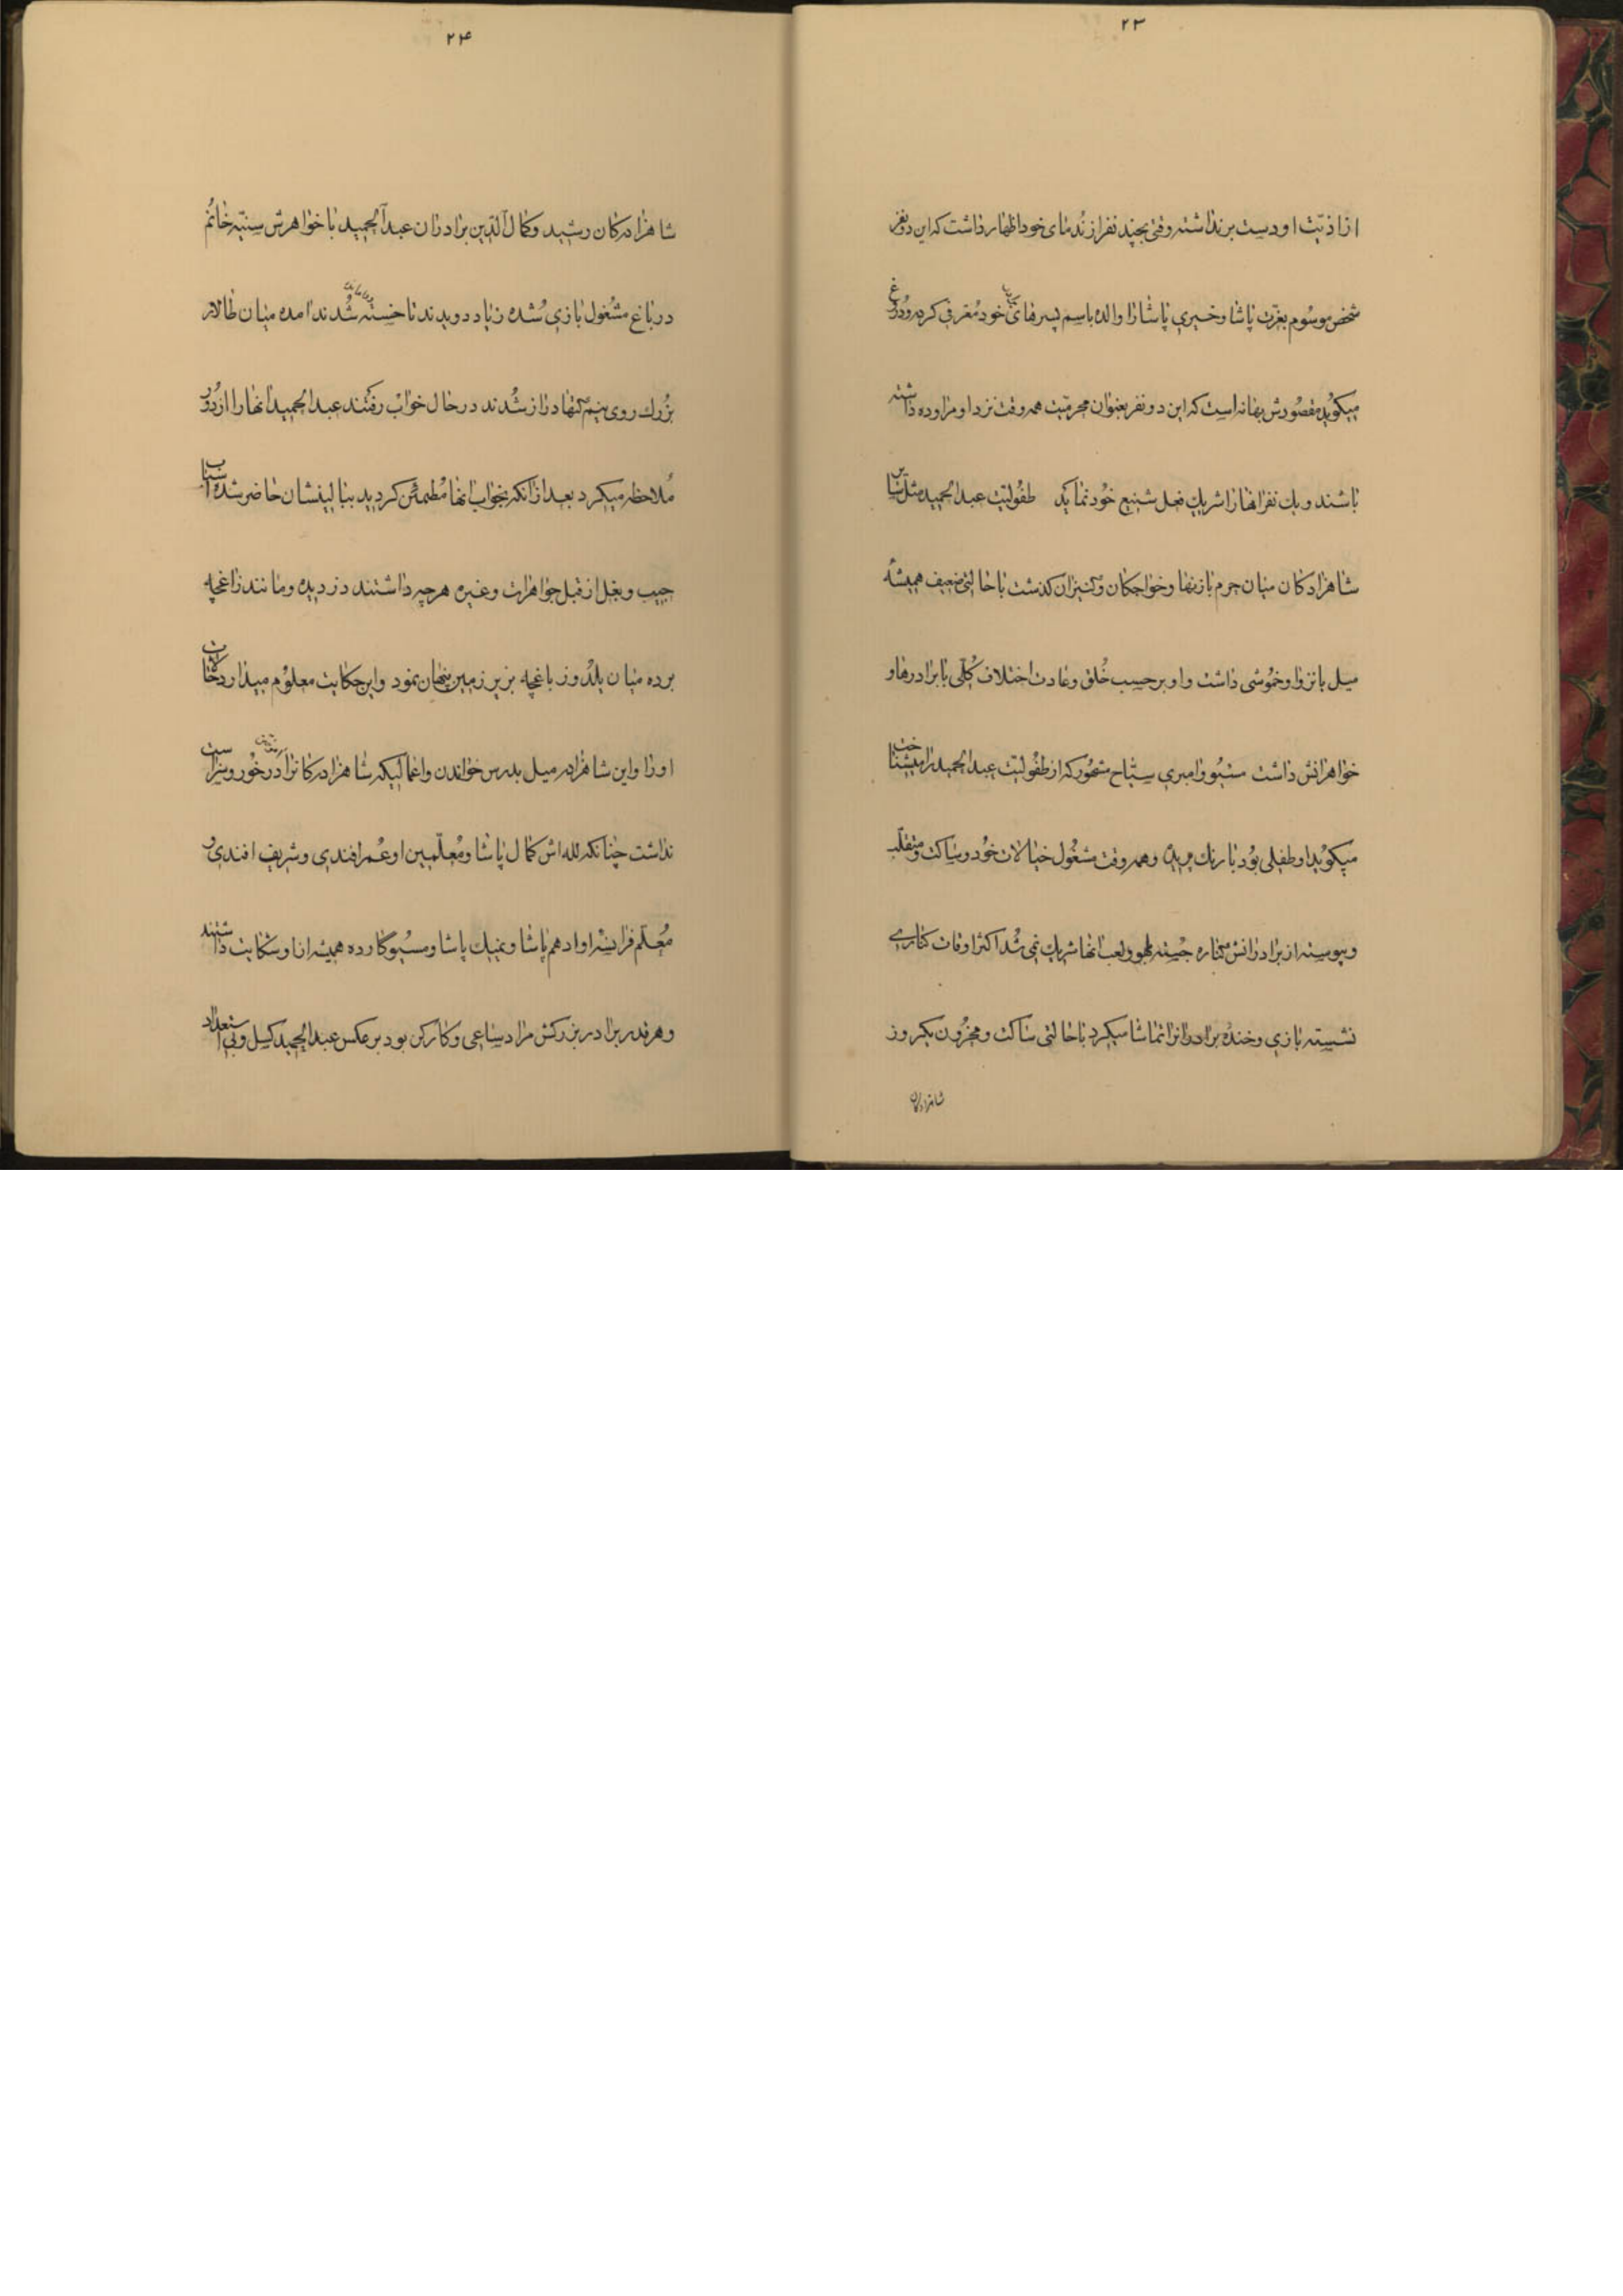 ۲۳
از اذیّت او دست برنداشته وقتی بچند نفر از نُدمای خود اظهار داشت که این دو نفر
شخص موسُوم بعزّت پاشا و خیری پاشا را والده باسم پسرهای خود مُعرّفی کرده دُروغ
میکوُید مقصُودش بهانه است که این دو نفر بعنوان محرمیّت همه وقت نزد او مراوده داشته
باشند و یک نفر انها را شریک فعل شنیع خُود نماید طفُولیّت عبدالحمید مثل سایر
شاهزادکان میان حرم با زنها و خواجکان و کنیزان کذشت با حالتی ضعیف همیشه
میل بانزوا و خموُشی داشت و او برحسب خُلق و عادت اختلاف کُلّی با برادرها و
خواهرانش داشت مسیُو وامبری سیّاح مشهُور که از طفُولیّت عبدالحمید را میشناخت
میکوُید او طفلی بوُد با رنک پریده و همه وقت مشغُول خیالات خُود و ساکت و متقلّب
و پیوسته از برادرانش کناره جُسته بلهو و لعب انها شریک نمی شُد اکثر اوقات کناری
نشسته بازی و خندهٔ برادرانرا تماشا میکرد با حالتی ساکت و محزُون یکروز
شاهزادکان
۲۴
شاهزاده کان رشید و کمال الدّین برادران عبدالحمید با خواهرش سنیّه خانُم
در باغ مشغُول بازی شُده زیاد دویدند تا خسته شُدند امده میان طالار
بزُرک روی نیم کتها دراز شُدند در حال خواب رفتند عبدالحمید انها را از دُور
مُلاحظه میکرد بعد از آنکه بخواب انها مُطمئن کردید ببالینشان حاضر شده اسباب
جیب و بغل از قبل جواهرات و غیره هرچه داشتند دزدیده و مانند زاغچه
برده میان یلدوز باغچه بزیر زمین پنهان نمود و این حکایت معلوُم میدارد
او را و این شاهزاده میل بدرس خواندن و اعمالیکه شاهزاده کانرا در خُور و سزاست
نداشت چنانکه لله اش کمال پاشا و مُعلّمین او عُمر افندی و شریف افندی و
مُعلّم فرانسه او ادهم پاشا و پاشا و مسیُو کارده همیشه از او شکایت داشتند
و هرقدر برادر بزرکش مراد ساعی و کارکن بود برعکس عبدالحمید کسل و بی استعداد